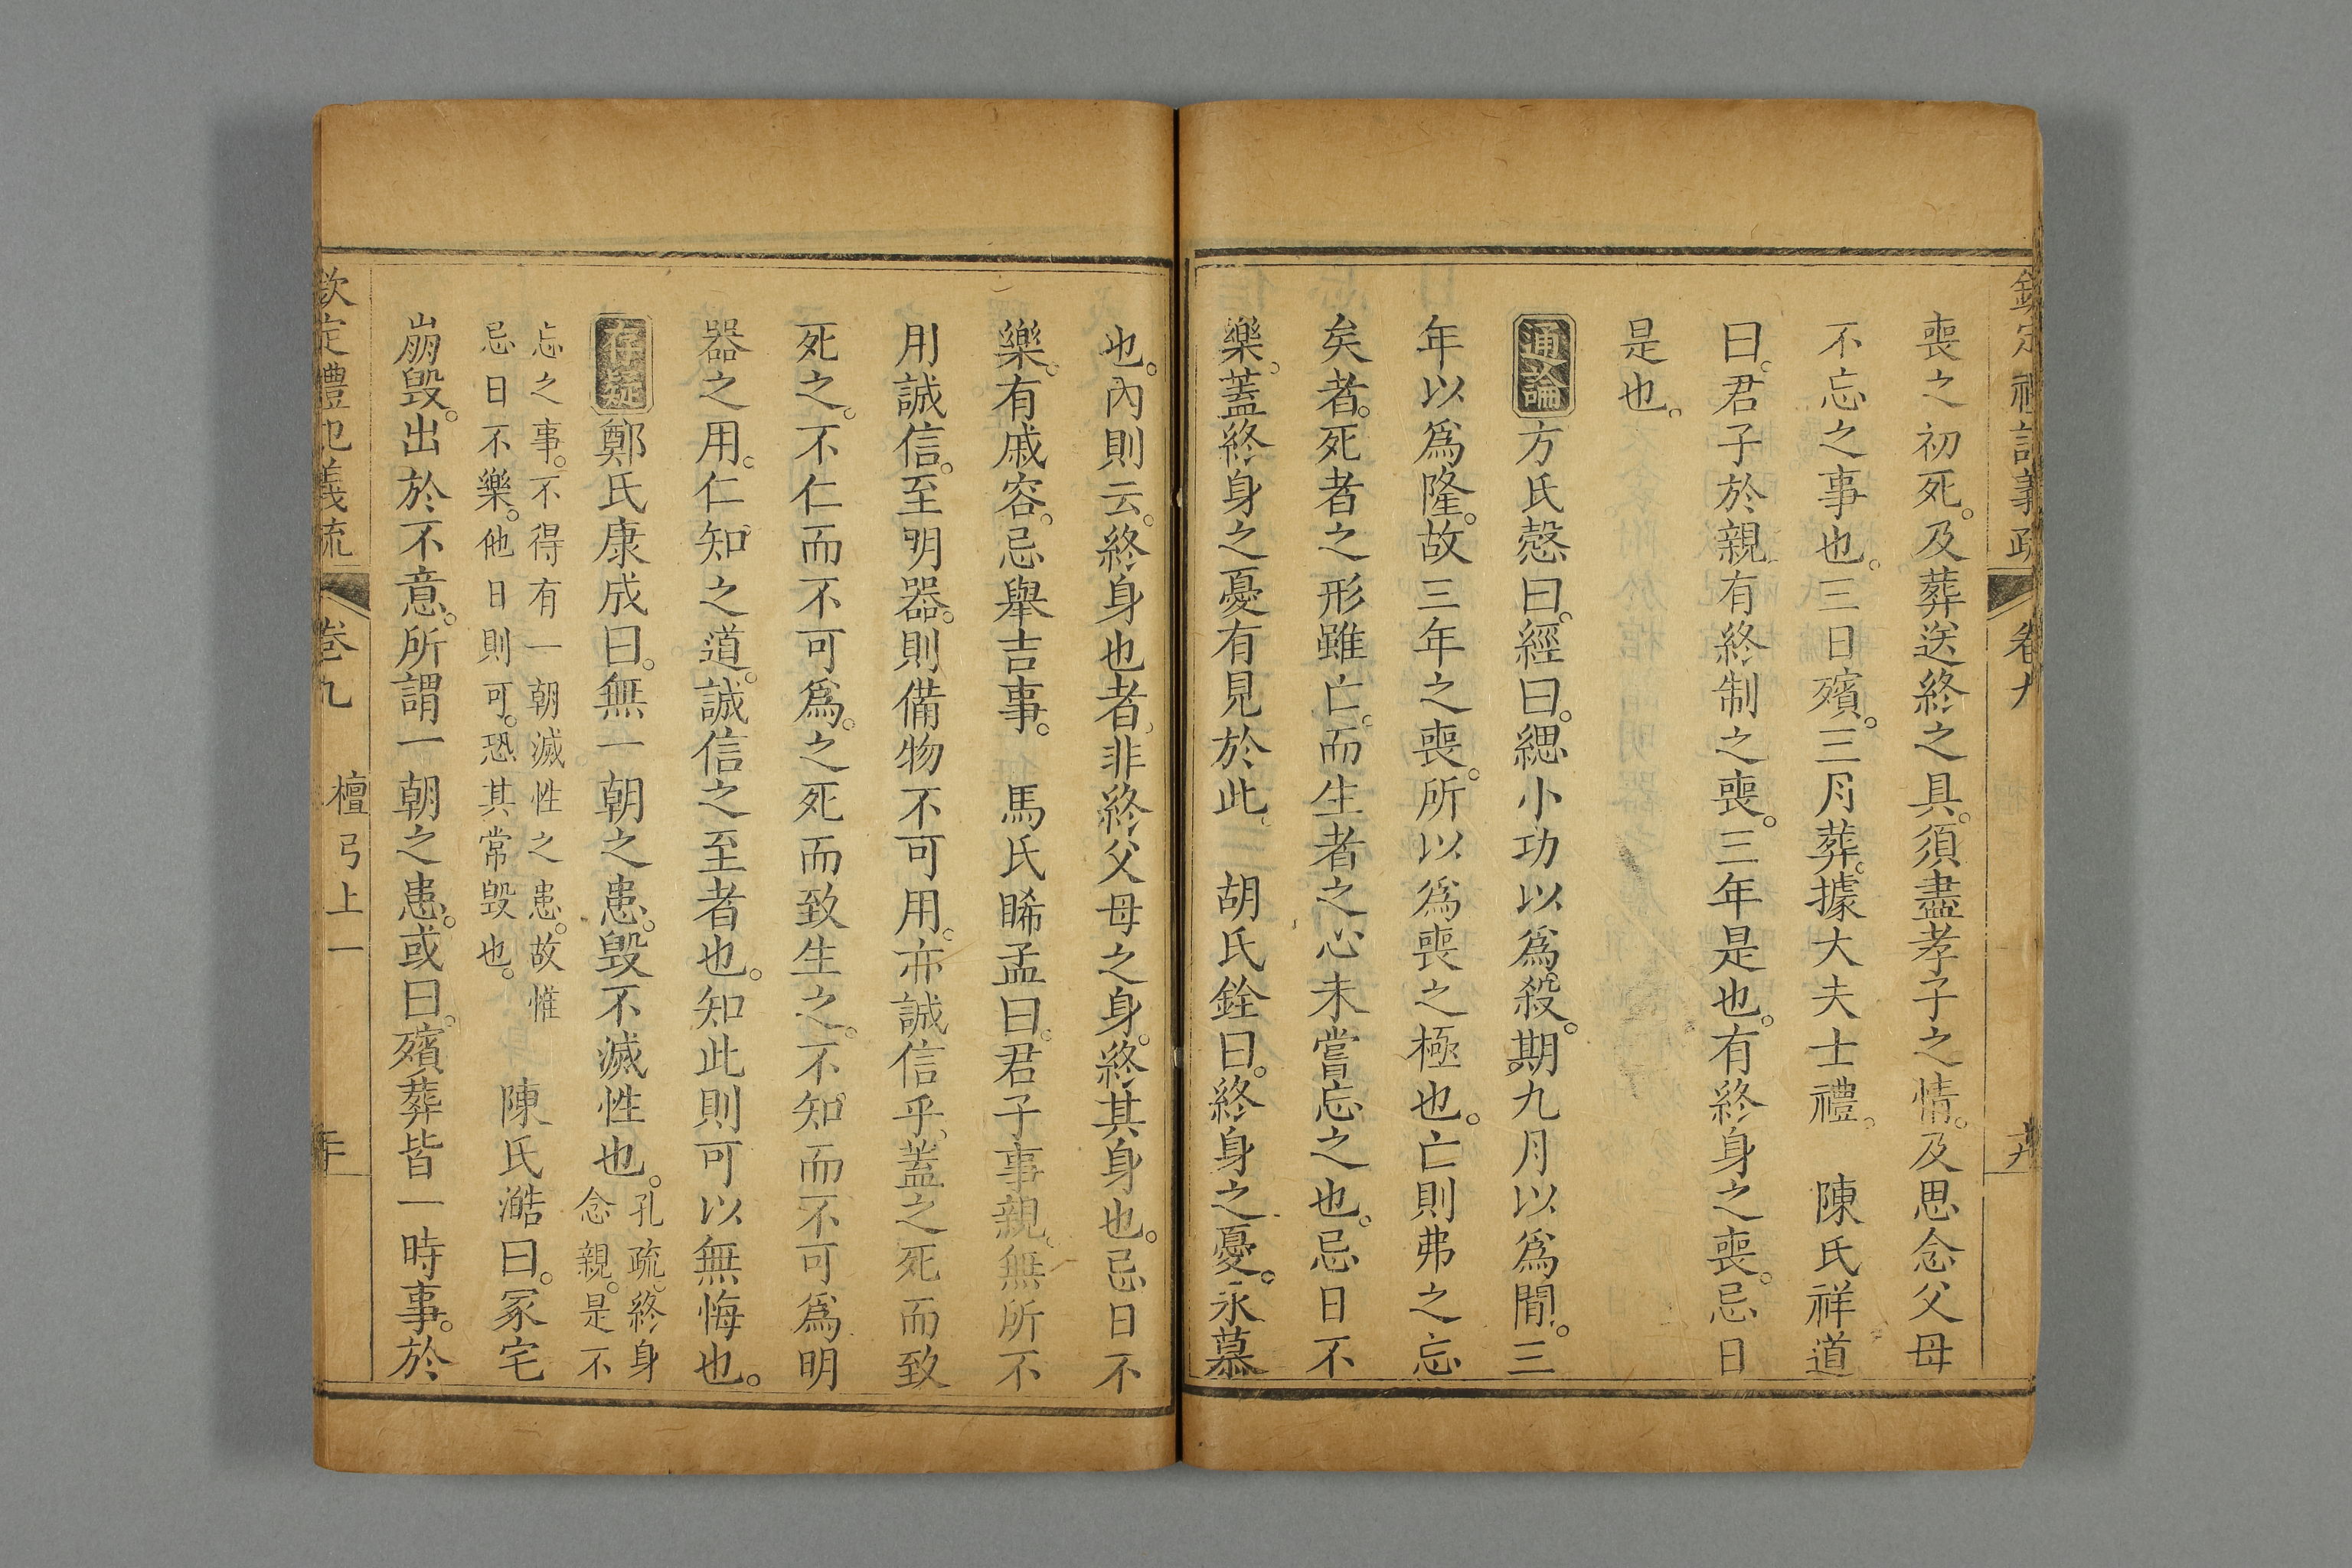 喪之初死。及葬送終之具。須盡孝子之情。及思念父母
不忘之事也。三日殯。三月葬。據大夫士禮。 陳氏祥道
曰。君子於親。有終制之喪。三年是也。有終身之喪。忌日
是也。
通論 方氏慤曰。經曰。緦小功以為殺。期九月以為間。三
年以為隆。故三年之喪。所以為喪之極也。亡則弗之忘
矣者。死者之形雖亡。而生者之心未嘗忘之也。忌日不
樂。蓋終身之憂有見於此。 胡氏銓曰。終身之憂。永慕
也。內則云。終身也者。非終父母之身。終其身也。忌日不
樂。有戚容。忌舉吉事。 馬氏睎孟曰。君子事親。無所不
用誠信。至明器。則備物不可用。亦誠信乎。蓋之死而致
死之。不仁而不可為。之死而致生之。不知而不可為。明
器之用。仁知之道。誠信之至者也。知此則可以無悔也。
存疑 鄭氏康成曰。無一朝之患。毀不滅性也。孔疏。終身
念親。是不
忘之事。不得有一朝滅性之患。故惟
忌日不樂。他日則可。恐其常毀也。 陳氏澔曰。冢宅
崩毀。出於不意。所謂一朝之患。或曰。殯葬皆一時事。於
欽定禮記義疏 卷九 檀弓上一